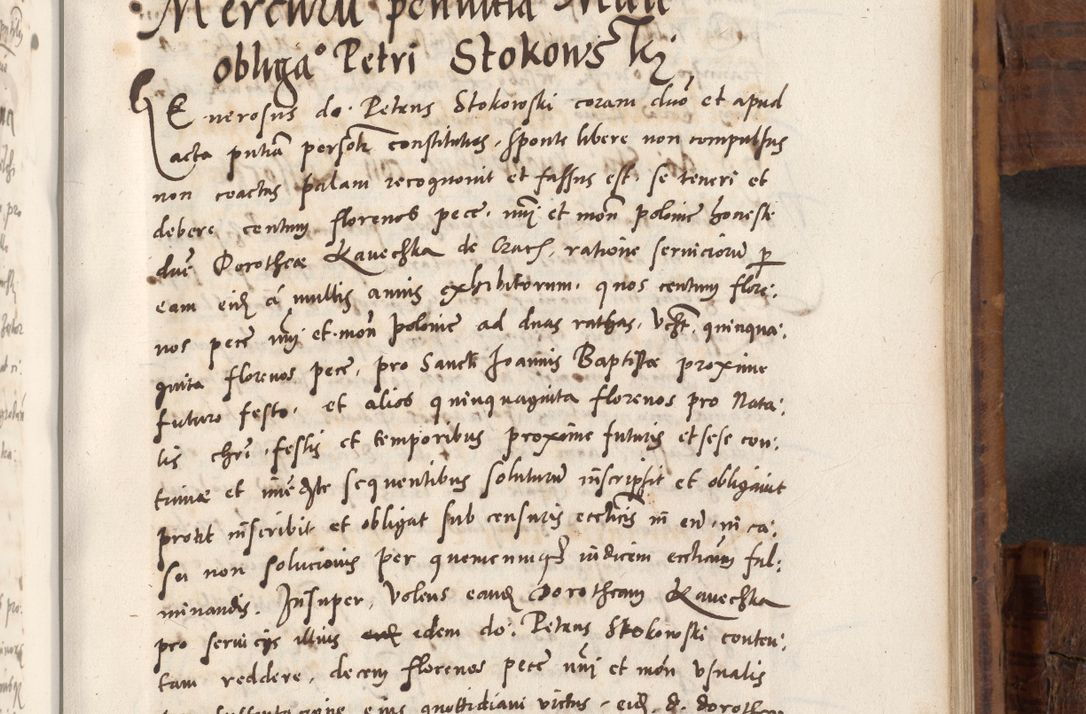 Mercurii penultia Maii
obliga° Petri Stokowski
GEnerosus do: Petrus Stokowski coram duo et apud
acta pntia persolr constitutus, sponte libere non compulsus
non coactus palam recognovit et fassus est, se teneri et
debere centum florenos pece, nui et mon polonie honeste
due Dorotheae Kavechka de Czarn, ratione serviciorum p
eam eid a multis annis exhibitorum, quos centum flore:
nos pece nui et mon polonie ad duas rathas, vczt, quinqua:
ginta florenos pece, pro Sancti Joannis Baptistae proxime
futuro festo, et alios quinquaginta florenos pro Nata:
lis chri festis et temporibus proxime futuris et sese con:
tinue et immediate sequentibus soluturum inscripsit et obligavit
protit inscribit et obligat sub censuris eccticis in eu in ca:
su non solucionis per quemcumq iudicem eccticum ful:
minandis. Insuper, volens eand Dorotheam Kavechka
pro serviciis illius idem do: Petrus Stokowski conten:
tam reddere, decem florenos pece nui et mon usualis
sustentatione eius quottidiani victus, eid d. doroth